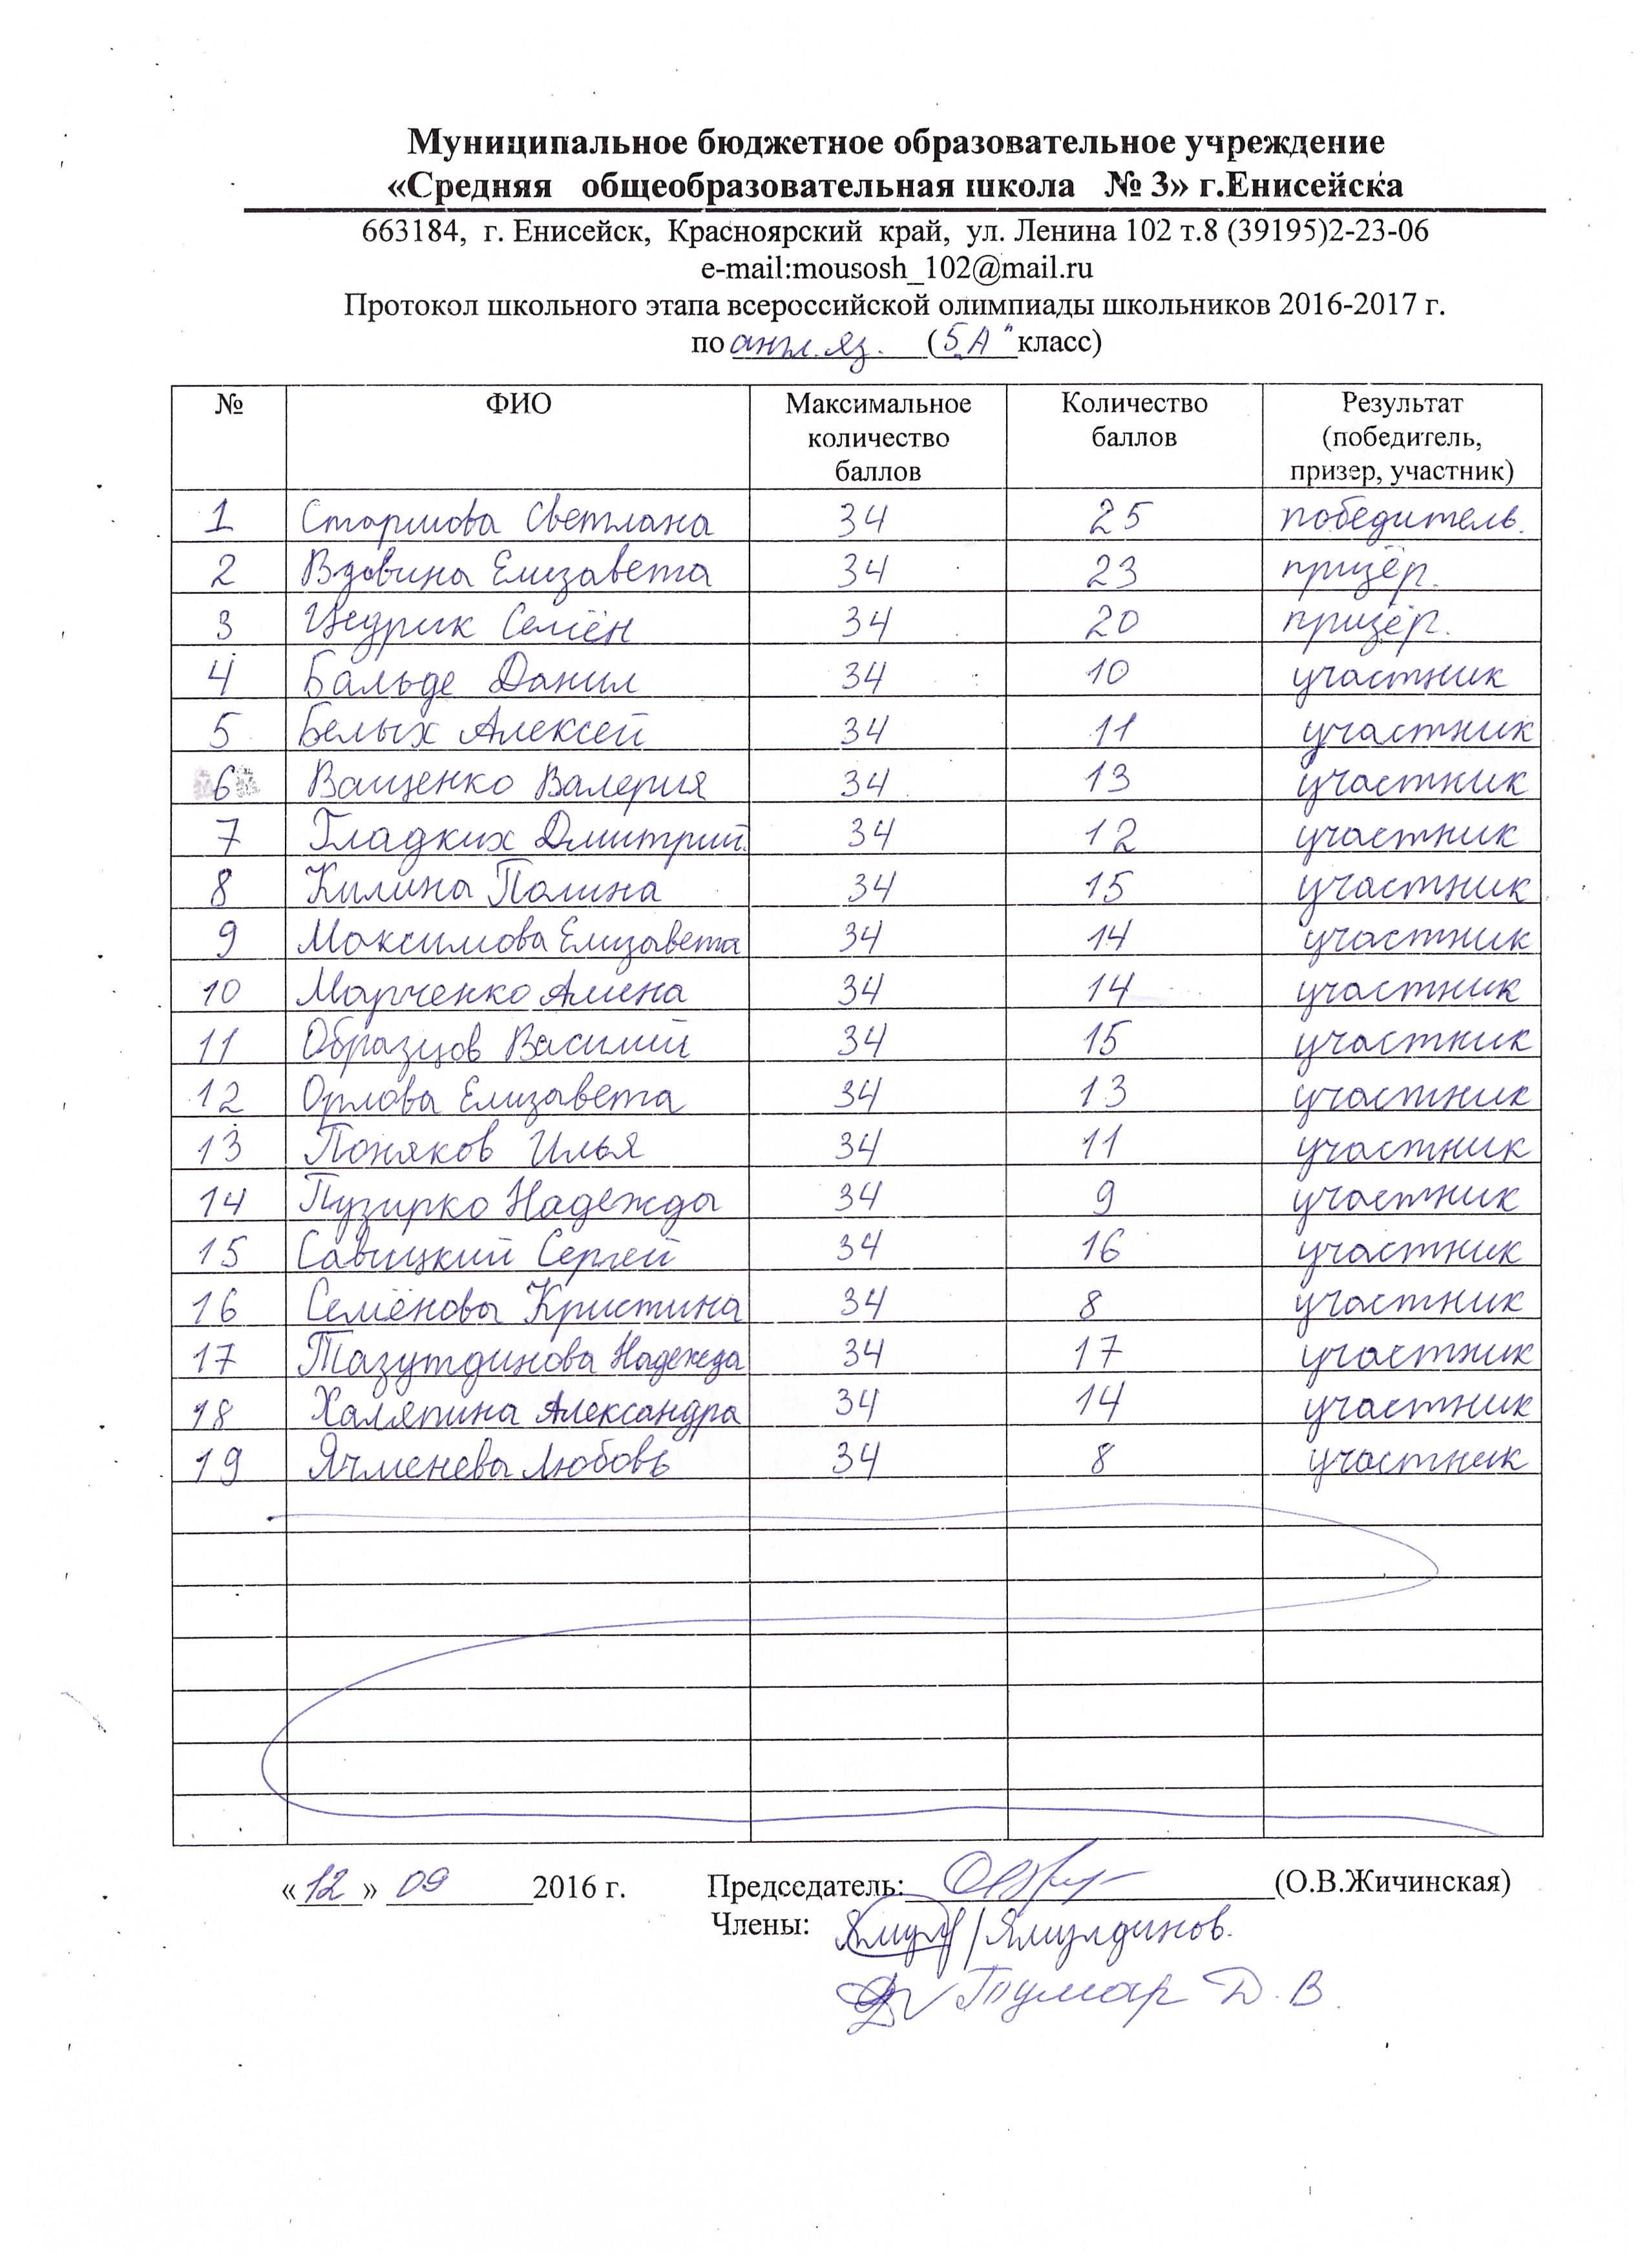 Муниципальное бюджетное образовательное учреждение
«Средняя общеобразовательная школа № 3» г.Енисейска
663184, г. Енисейск, Красноярский край, ул. Ленина 102 т.8 (39195)2-23-06
e-mail:mousosh_102@mail.ru
Протокол школьного этапа всероссийской олимпиады школьников 2016-2017 г.
по англ.яз. (5„А" класс)
№ ФИО Максимальное количество баллов Количество баллов Результат (победитель, призер, участник)
1 Светлана 34 25 победитель.
2 Вдовина Елизавета 34 23 призёр.
3 Цедрик Семён 34 20 призёр.
4 Бальде Данил 34 10 участник
5 Белых Алексей 34 11 участник
6 Ващенко Валерия 34 13 участник
7 Гладких Дмитрий 34 12 участник
8 Килина Полина 34 15 участник
9 Максимова Елизавета 34 14 участник
10 Марченко Алена 34 14 участник
11 Образцов Василий 34 15 участник
12 Орлова Елизавета 34 13 участник
13 Поняков Илья 34 11 участник
14 Пузирко Надежда 34 9 участник
15 Савицкий Сергей 34 16 участник
16 Семёнова Кристина 34 8 участник
17 Тазутдинова Надежда 34 17 участник
18 Халяпина Александра 34 14 участник
19 Ячменева Любовь 34 8 участник
«12» 09 2016 г. Председатель: (О.В.Жичинская)
Члены: / Ямулдинов.
Тумар Д.В.